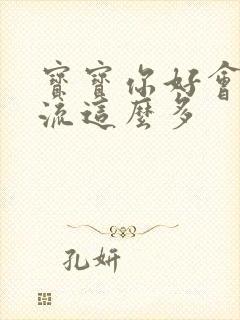 寶寶你好會
流這麼多
孔妍